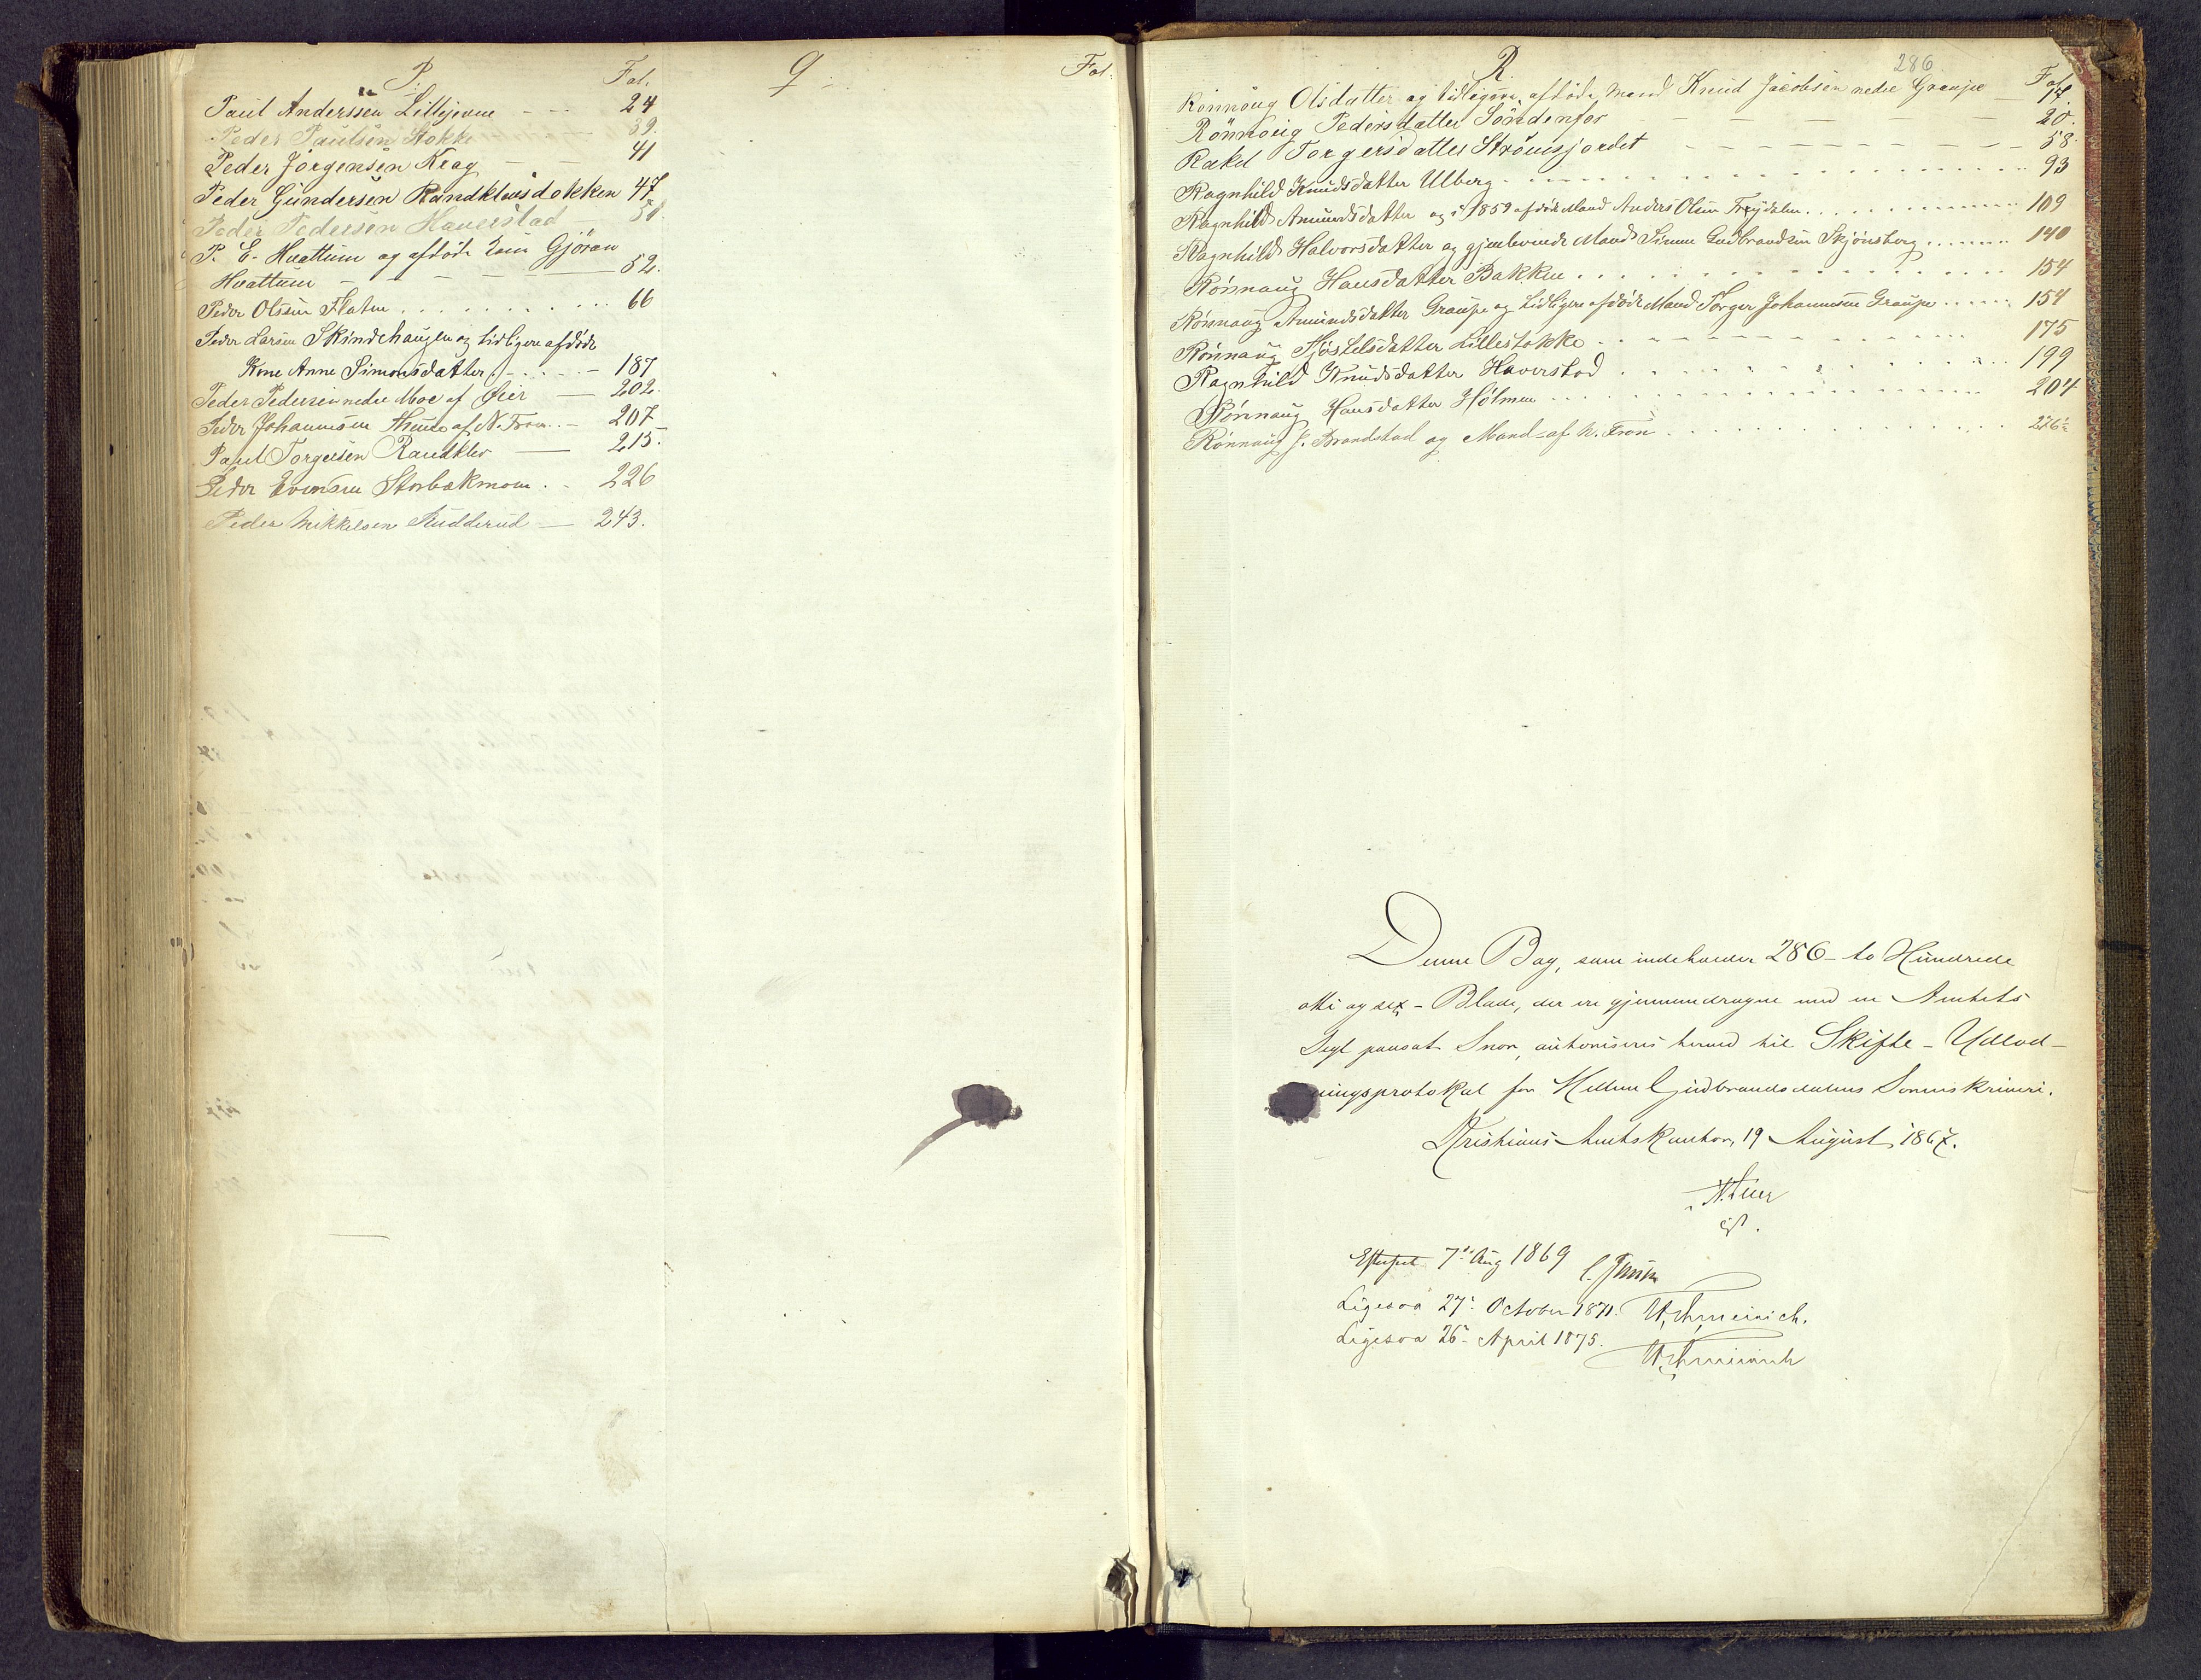 P. Fol.
Paul Anderssen Lillejevne - - - 24
Peder Paulsen Stokke 39.
Peder Jörgensen Krag - - 41
Peder Gundersen Randklevsdokken 47
Peder Pedersen Haverstad - 51.
P. E. Hvattum og afdöde Kone Gjöran
Hvattum - - - 52.
Peder Olssen Flaten . . . . . . . . . 66
Peder Larsen Skindehaugen og tidligere afdöde
Kone Anne Simonsdatter . - . . . - 187
Peder Pedersen nedre Moe af Øier — 202.
Peder Johannesen Thune af N. Fron . . - 207
Paul Torgersen Randklev — 215.
Peder Evensen Storbækmoen . . 226
Peder Mikkelsen Rudderud — 243.
Q. Fol.
286
R. Fol.
Rönnöug Olsdatter og tidligere afdöde Mand Knud Jacobsen nedre Graupe — 14.
Rönnoug Pedersdatter Söndenfor 20.
Rakel Torgersdatter Strömsjordet 58.
Ragnhild Knudsdatter Ulberg 93
Ragnhild Amundsdatter og i 1859 afdöde Mand Anders Olsen Frydalen 109
Ragnhild Halvorsdatter og gjenlevende Mand Simen Gudbrandsen Skjönsberg 140
Rönnaug Hansdatter Bakken 154
Rönnaug Amundsdatter Graupe og tidligere afdöde Mand Torger Johannesen Graupe 154
Rönnaug Kjöstelsdatter Lillestokke 175
Ragnhild Knudsdatter Haverstad 199
Rönnaug Hansdatter Holmen 204
Rönnaug J. Brandstad og Mand af N. Fron 276
Denne Bog, som indeholder 286 - to Hundrede
otti og sex - Blade, der ere gjennemdragne med en Amtets
Segl paasat Snor, autoriseres herved til Skifte - Udlod-
ningsprotokol for Mellem Gudbrandsdalens Sorenskriveri.
Kristians Amtskontor, 19 August 1867.
Eftersect 7de Aug 1869
Ligesaa 27. October 1871.
Ligesaa 26. April 1875.